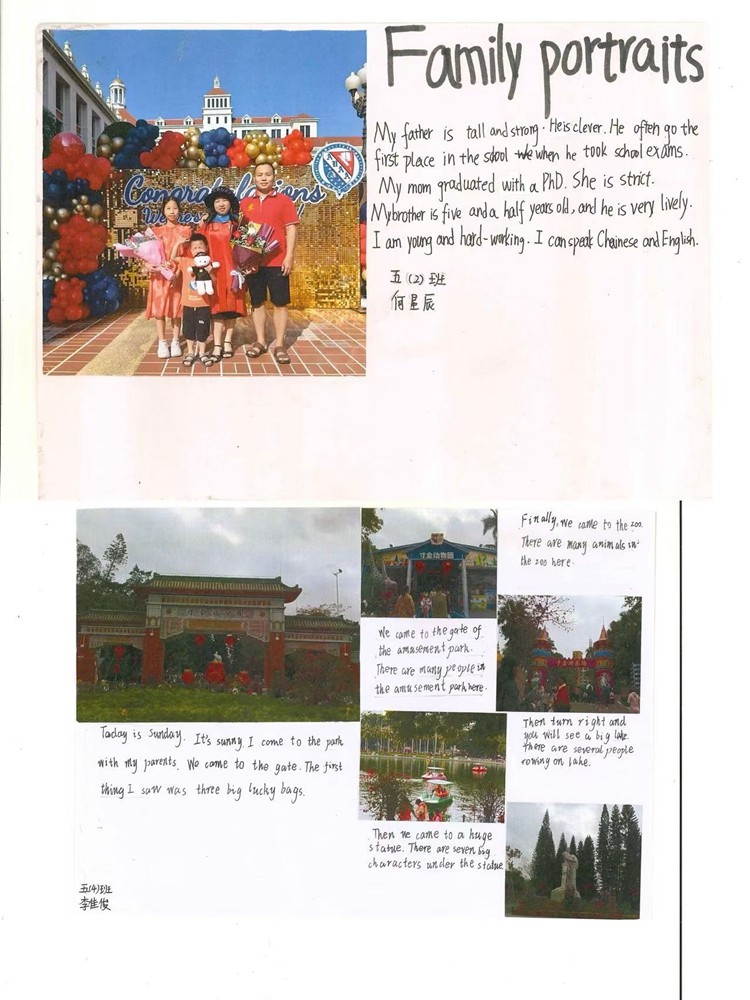 Family portraits
Congratulations
My father is tall and strong. He is clever. He often go the
first place in the school when he took school exams.
My mom graduated with a PhD. She is strict.
My brother is five and a half years old, and he is very lively.
I am young and hard-working. I can speak Chainese and English.
五(2)班
何星辰
Finally, we came to the zoo.
There are many animals in
the zoo here.
寸金动物园
We came to the gate of
the amusement park.
There are many people in
the amusement park here.
Taday is Sunday. It's sunny. I come to the park
with my parents. We came to the gate. The first
thing I saw was three big lucky bags.
Then turn right and
you will see a big lake.
there are several people
rowing on lake.
Then we came to a huge
statue. There are seven big
characters under the statue
五(4)班
李佳俊